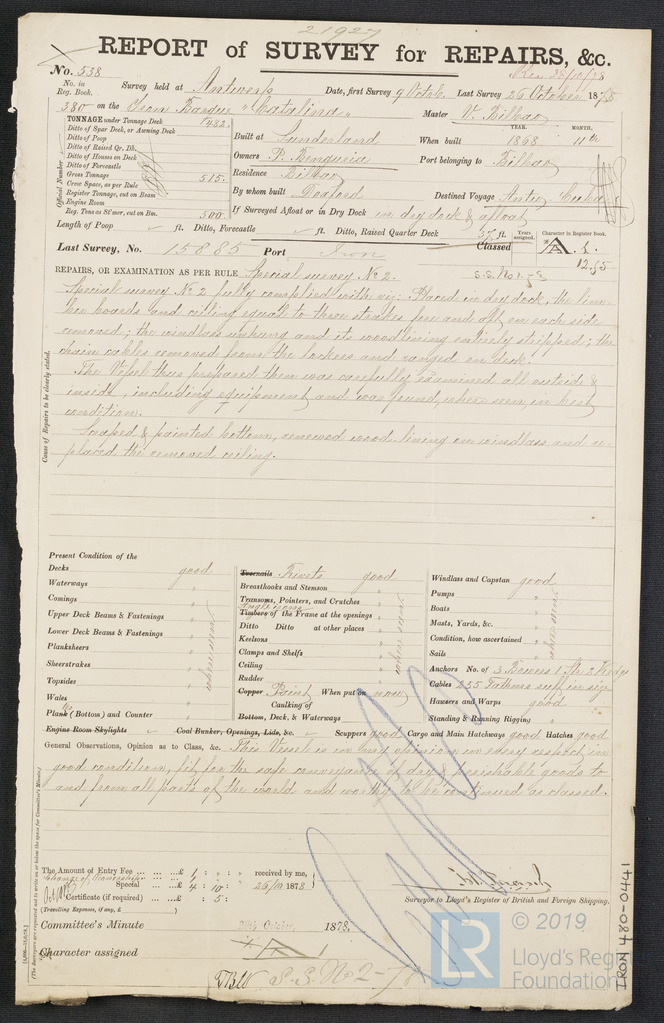 21927
REPORT of SURVEY for REPAIRS, &c.
No. 538
Rec 28/10/78
No. in Reg. Book. Survey held at Antwerp Date, first Survey 9 Octob. Last Survey 26 October 1878
380 on the "Catalina" Master V. Bilbao
TONNAGE under Tonnage Deck 482.
Ditto of Spar Deck, or Awning Deck
Ditto of Poop
Ditto of Raised Qr. Dk.
Ditto of Houses on Deck
Ditto of Forecastle
Gross Tonnage 515.
Crew Space, as per Rule
Register Tonnage, cut on Beam
Engine Room
Reg. Tons as St'mer, cut on Bm. 500.
Official Number
Built at Sunderland When built YEAR. 1868 MONTH. 11th
Owners Port belonging to Bilbao
Residence Bilbao
By whom built Doxford Destined Voyage
If Surveyed Afloat or in Dry Dock in dry dock & afloat
Length of Poop ft. Ditto, Forecastle ft. Ditto, Raised Quarter Deck 37 ft.
Years assigned. Character in Register Book.
Last Survey, No. 15885 Port Iron Classed A.1.
12.75
REPAIRS, OR EXAMINATION AS PER RULE Special survey No 2.
Special survey No 2 fully complied with viz: Placed in dry dock, the lim-
ber boards and ceiling equal to three strakes fore and aft, on each side
removed; the windlass unhung and its woodlining entirely stripped; the
chain cables removed from the lockers and ranged on deck.
The Vessel thus prepared then was carefully examined all outside &
inside, including equipment, and was found, where seen, in best
condition.
Scraped & painted bottom, renewed wood lining on windlass and re-
placed the removed ceiling.
Cause of Repairs to be clearly stated.
Present Condition of the
Decks good
Waterways "
Comings "
Upper Deck Beams & Fastenings "
Lower Deck Beams & Fastenings "
Planksheers "
Sheerstrakes "
Topsides "
Wales "
Plank (Bottom) and Counter "
where seen
Treenails Rivets good
Breasthooks and Stemson "
Transoms, Pointers, and Crutches "
Angle irons
Timbers of the Frame at the openings "
Ditto Ditto at other places "
Keelsons "
Clamps and Shelfs "
Ceiling "
Rudder "
Copper Paint When put on now
Caulking of
Bottom, Deck, & Waterways
where seen
Windlass and Capstan good
Pumps "
Boats "
Masts, Yards, &c. "
Condition, how ascertained
Sails "
where seen
Anchors No. of 3 Bowers 1 Str 2 Kedge
Cables 255 Fathoms suff. in size
Hawsers and Warps good
Standing & Running Rigging "
Engine Room Skylights Coal Bunker, Openings, Lids, &c. Scuppers good Cargo and Main Hatchways good Hatches good
General Observations, Opinion as to Class, &c. This Vessel is in my opinion in every respect in
good condition, fit for the safe conveyance of dry & perishable goods to
and from all parts of the world and worthy to be continued as classed.
The Amount of Entry Fee £ 1 : " : " received by me,
Special £ 4 : 10 : 26/10 1878
Certificate (if required) £ : 5 :
(Travelling Expenses, if any, £ )
Surveyor to Lloyd's Register of British and Foreign Shipping.
Committee's Minute 1878.
Character assigned A
S.S. No 2-78
IRON 480-0441
LR
© 2019
Lloyd's Register
Foundation